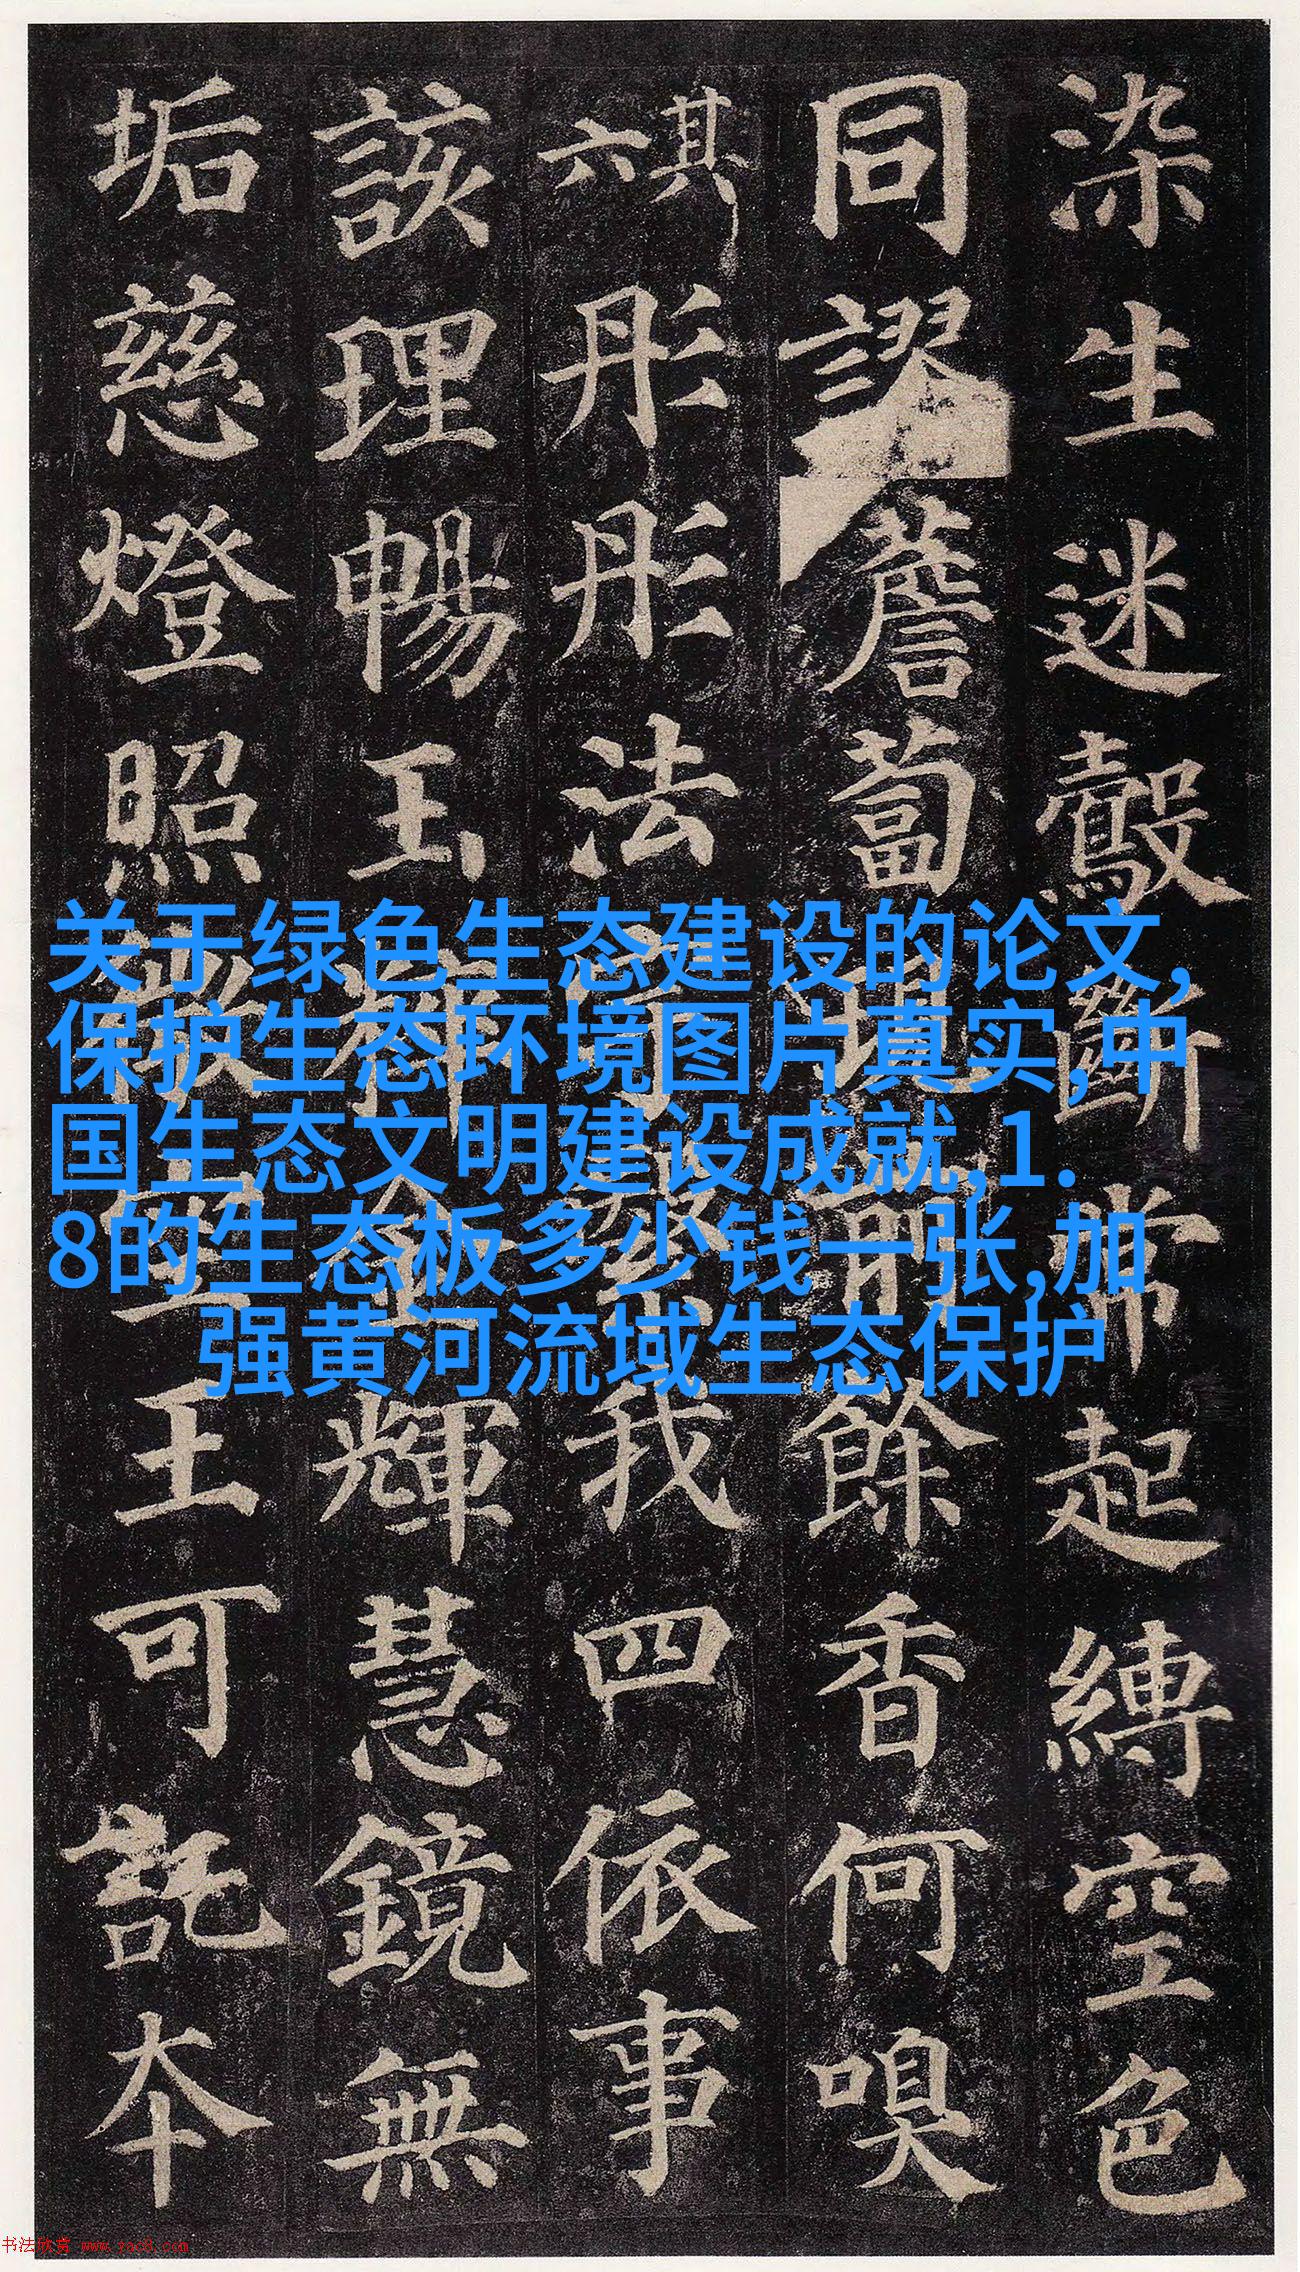 染生迷鷇斷常起縛空色
同謬薝蔔現前餘香何嗅
其六彤彤法宇繄我四依事
該理暢玉粹金輝慧鏡無
垢慈燈照微空王可託本
关于绿色生态建设的论文,
保护生态环境图片真实,中
国生态文明建设成就,1.
8的生态板多少钱一张,加
强黄河流域生态保护
书法欣赏 www.yac8.com